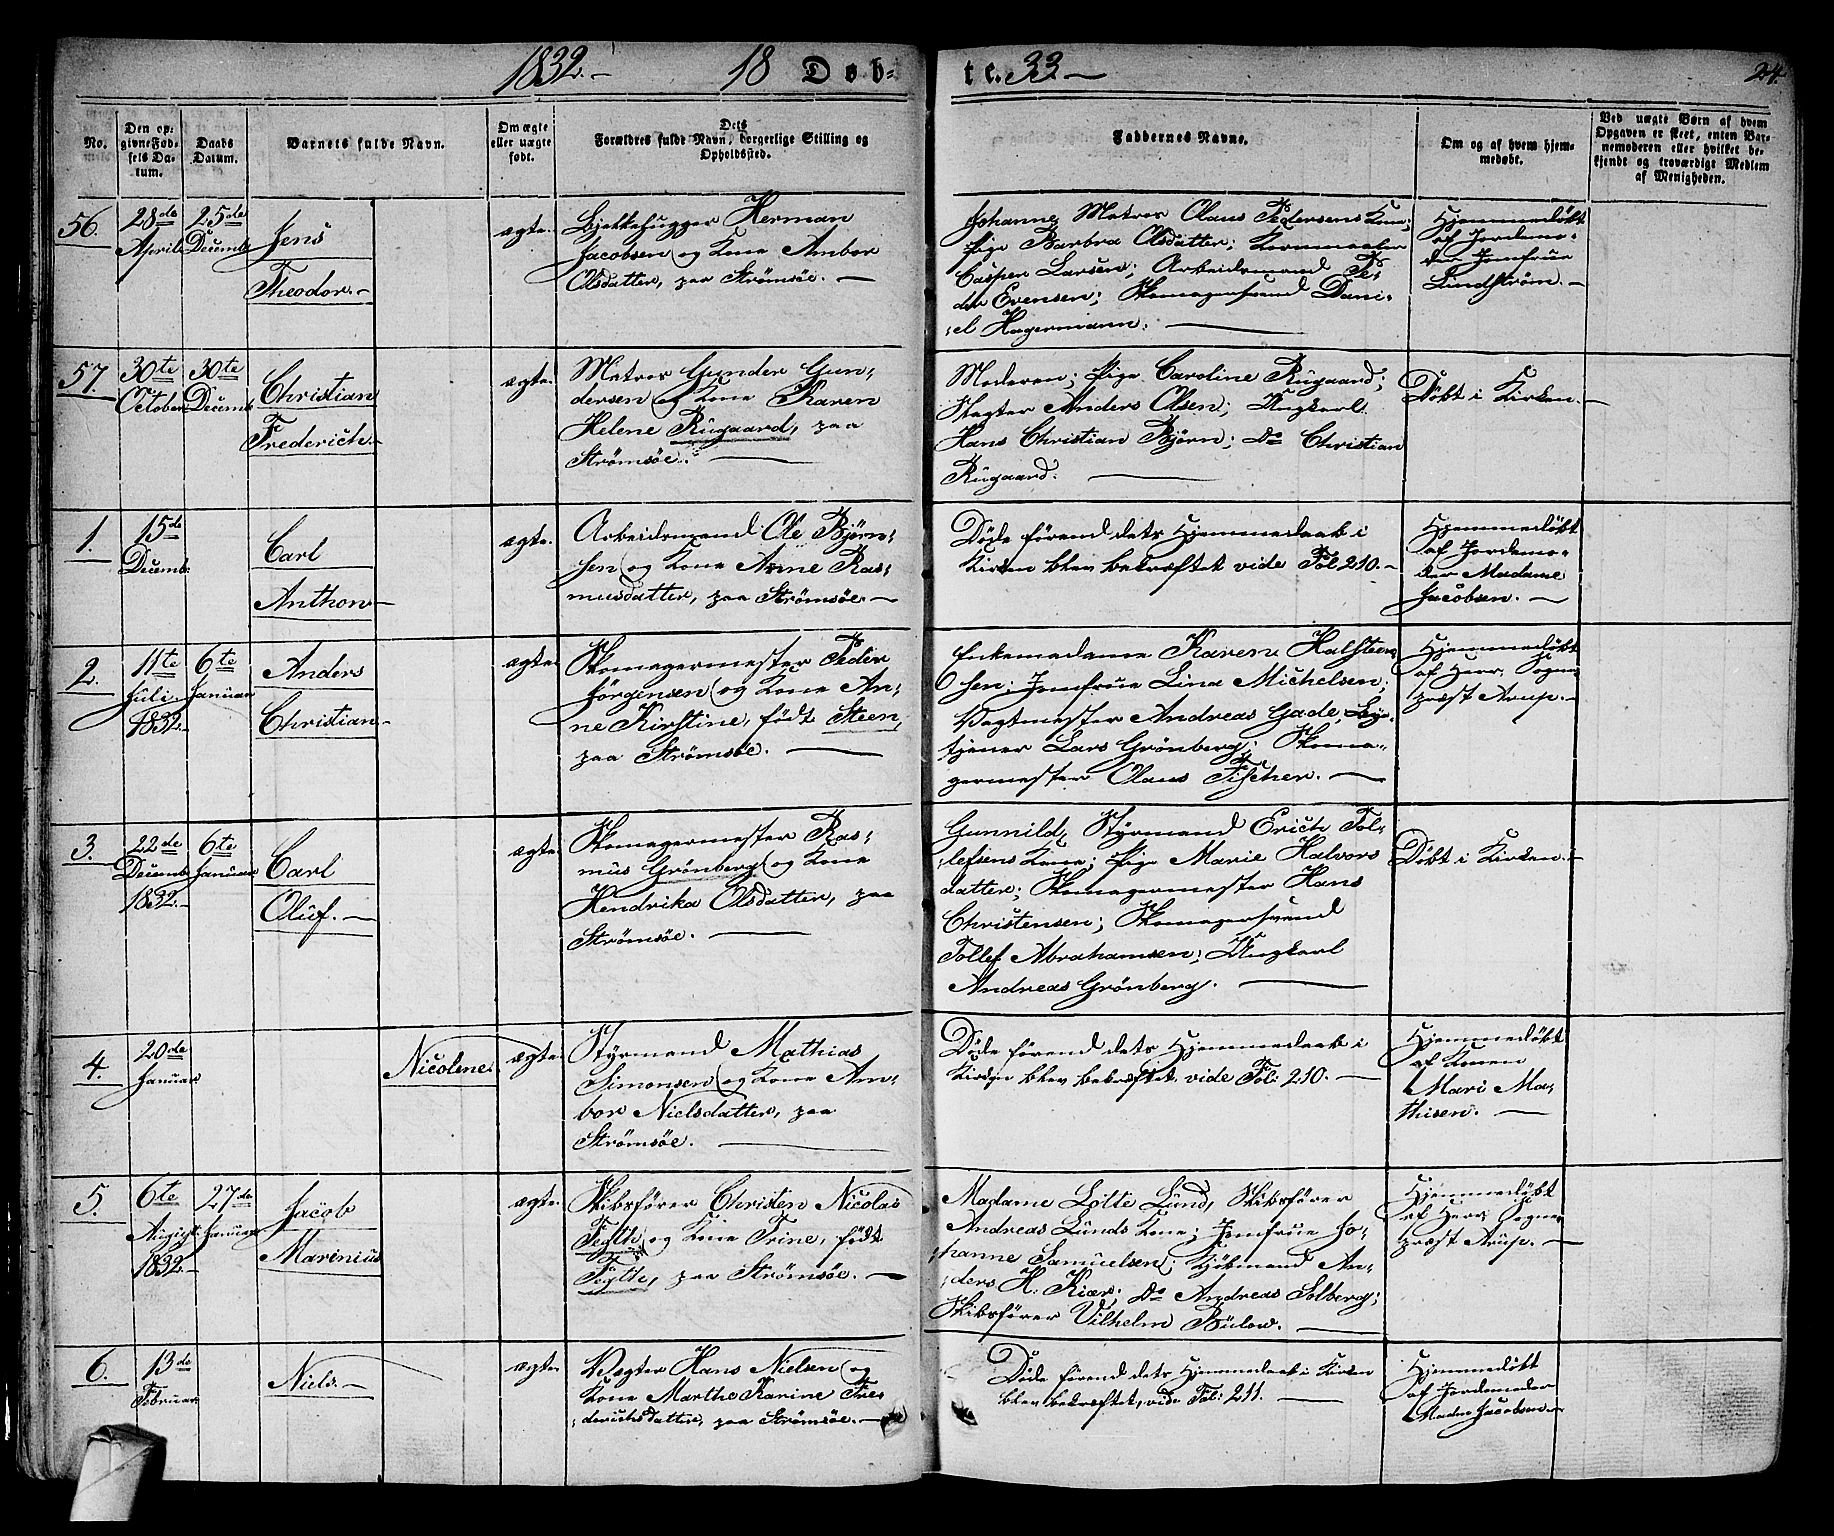 1832.- 18 Døb-
te. 33-
24.
No.
Den op-
givne Fød-
sels Da-
tum.
Daabs
Datum.
Barnets fulde Navn.
Om ægte
eller uægte
født.
Dets
Forældres fulde Navn, borgerlige Stilling og
Opholdssted.
Faddernes Navne.
Om og af hvem hjem-
medøbt.
Ved uægte Børn af hvem
Opgaven er skeet, enten Bar-
nemoderen eller hvilket be-
kjendt og troværdigt Medlem
af Menigheden.
56.
28de
April
25de
Decemb
Jens
Theodor.-
ægte.
Bjelkehugger Herman
Jacobsen og Kone Anbor
Olsdatter, paa Strømsøe.-
Johanne Matros Olaus Pedersens Kone;
Pige Barbra Olsdatter; Kornmaaler
Casper Larsen; Arbeidsmand Pe-
der Evensen; Skomagersvend Dani-
el Hagermann.-
Hjemmedøbt
af Jordemo-
der Jomfrue
Lindstrøm.-
57.
30te
October
30te
Decemb
Christian
Frederich.-
ægte.
Matros Gunder Gun-
dersen og Kone Karen
Helene Rugaard, paa
Strømsøe.-
Moderen; Pige Caroline Rugaard;
Slagter Anders Olsen; Ungkarl
Hans Christian Bjørn; Do Christian
Rugaard.-
Døbt i Kirken.-
1.
15de
Decemb.
Carl
Anthon-
ægte.
Arbeidsmand Ole Bjørn-
sen og Kone Anne Ras-
musdatter, paa Strømsøe.-
Døde førend dets Hjemmedaab i
Kirken blev bekræftet vide Fol 210.-
Hjemmedøbt
af Jordemo-
der Madame
Jacobsen.-
2.
11te
Juli
1832.-
6te
Januar
Anders
Christian-
ægte.
Skomagermester Peder
Jørgensen og Kone An-
ne Kirstine, født Steen,
paa Strømsøe.-
Enkemadame Karen Halsteen-
sen; Jomfrue Lina Michelsen;
Vagtmester Andreas Gade, By-
tjener Lars Grønberg; Skoma-
germester Olaus Fischer.-
Hjemmedøbt
af Herr Sogne-
præst Arup.-
3.
22de
Decemb
1832.-
6te
Januar
Carl
Oluf.-
ægte.
Skomagermester Ras-
mus Grønberg og Kone
Hendrika Olsdatter, paa
Strømsøe.-
Gunnild, Styrmand Erich Tol-
lefsens Kone; Pige Marie Halvors
datter; Skomagermester Hans
Christensen; Skomagersvend
Tollef Abrahamsen; Ungkarl
Andreas Grønberg.-
Døbt i Kirken.-
4.
20de
Januar
Nicolene.
ægte.
Styrmand Mathias
Simonsen og Kone An-
bor Nielsdatter, paa
Strømsøe.-
Døde førend dets Hjemmedaab i
Kirken blev bekræftet vide Fol: 210.-
Hjemmedøbt
af Konen
Mari Ma-
thisen.-
5.
6te
August
1832.-
27de
Januar
Jacob
Marenius
ægte.
Skibsfører Christen Nicolas
Fegth og Kone Trine, født
Fegtte, paa Strømsøe.-
Madame Lotte Lund, Skibsfører
Andreas Lunds Kone; Jomfrue Jo-
hanne Samuelsen; Kjøbmand An-
ders H. Kiær; Do Andreas Solberg;
Skibsfører Vilhelm Bülow.-
Hjemmedøbt
af Herr Sogne
præst Arup.-
6.
13de
Februar
Niels.-
ægte.
Vægter Hans Nielsen og
Kone Marthe Karine Fre-
derichsdatter, paa Strømsøe.-
Døde førend dets Hjemmedaab i Kirken
blev bekræftet, vide Fol: 211.-
Hjemmedøbt
af Jordemoder
Madme Jacobsen.-